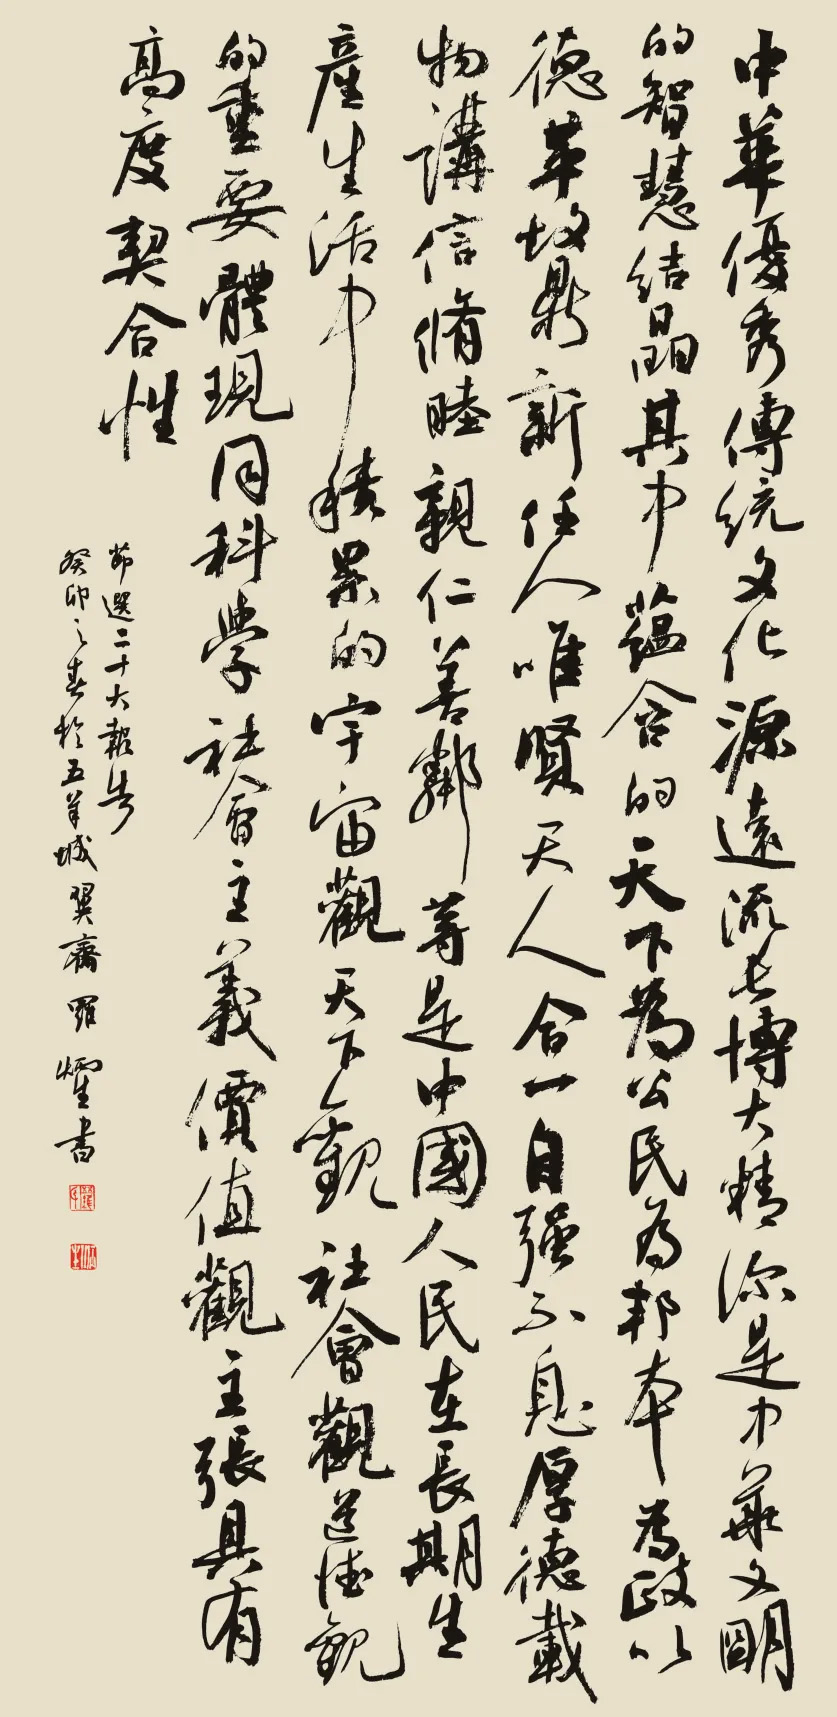 中華優秀傳統文化源遠流長博大精深是中華文明
的智慧結晶其中蘊含的天下為公民為邦本為政以
德革故鼎新任人唯賢天人合一自强不息厚德載
物講信脩睦親仁善鄰等是中國人民在長期生
產生活中積累的宇宙觀天下觀社會觀道德觀
的重要體現同科學社會主義價值觀主張具有
高度契合性
節選二十大報告
癸卯之春於五羊城翼齋羅燿書